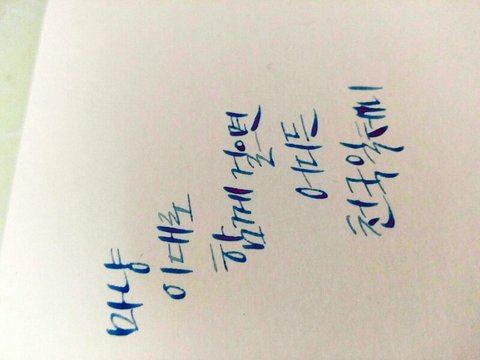 마냥
이대로
함께 걸으면
어디든
천국일테니